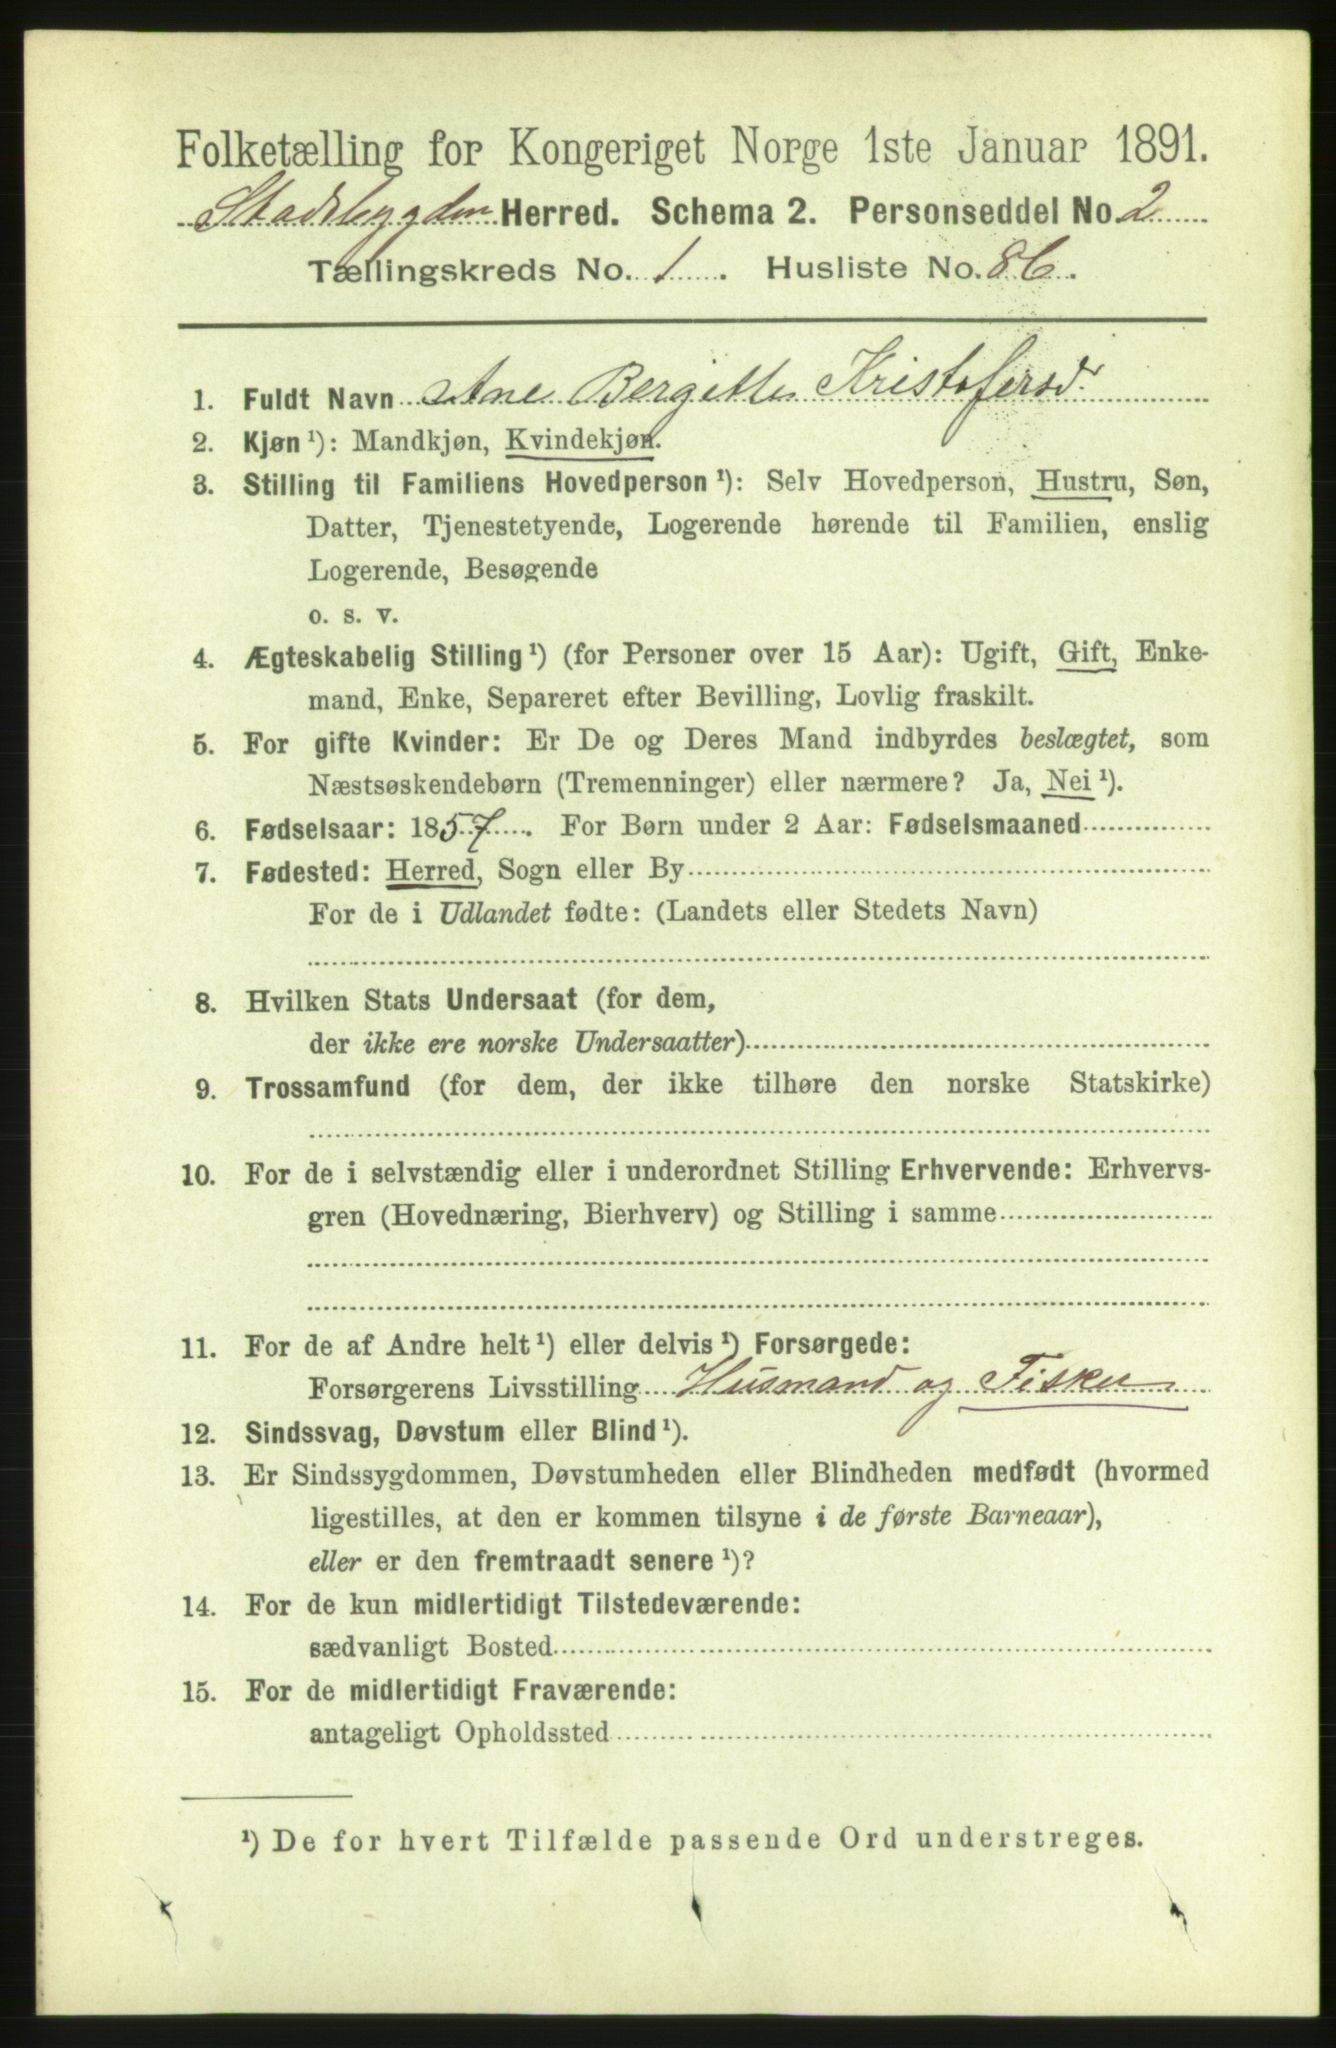 Folketælling for Kongeriget Norge 1ste Januar 1891.
Stadsbygden Herred. Schema 2. Personseddel No. 2
Tællingskreds No. 1. Husliste No. 86.
1. Fuldt Navn Ane Bergitte Kristofersd.
2. Kjøn¹): Mandkjøn, Kvindekjøn.
3. Stilling til Familiens Hovedperson¹): Selv Hovedperson, Hustru, Søn,
Datter, Tjenestetyende, Logerende hørende til Familien, enslig
Logerende, Besøgende
o. s. v.
4. Ægteskabelig Stilling¹) (for Personer over 15 Aar): Ugift, Gift, Enke-
mand, Enke, Separeret efter Bevilling, Lovlig fraskilt.
5. For gifte Kvinder: Er De og Deres Mand indbyrdes beslægtet, som
Næstsøskendebørn (Tremenninger) eller nærmere? Ja, Nei¹).
6. Fødselsaar: 1857. For Børn under 2 Aar: Fødselsmaaned
7. Fødested: Herred, Sogn eller By
For de i Udlandet fødte: (Landets eller Stedets Navn)
8. Hvilken Stats Undersaat (for dem,
der ikke ere norske Undersaatter)
9. Trossamfund (for dem, der ikke tilhøre den norske Statskirke)
10. For de i selvstændig eller i underordnet Stilling Erhvervende: Erhvervs-
gren (Hovednæring, Bierhverv) og Stilling i samme
11. For de af Andre helt¹) eller delvis¹) Forsørgede:
Forsørgerens Livsstilling Husmand og Fisker
12. Sindssvag, Døvstum eller Blind¹).
13. Er Sindssygdommen, Døvstumheden eller Blindheden medfødt (hvormed
ligestilles, at den er kommen tilsyne i de første Barneaar),
eller er den fremtraadt senere¹)?
14. For de kun midlertidigt Tilstedeværende:
sædvanligt Bosted
15. For de midlertidigt Fraværende:
antageligt Opholdssted
¹) De for hvert Tilfælde passende Ord understreges.